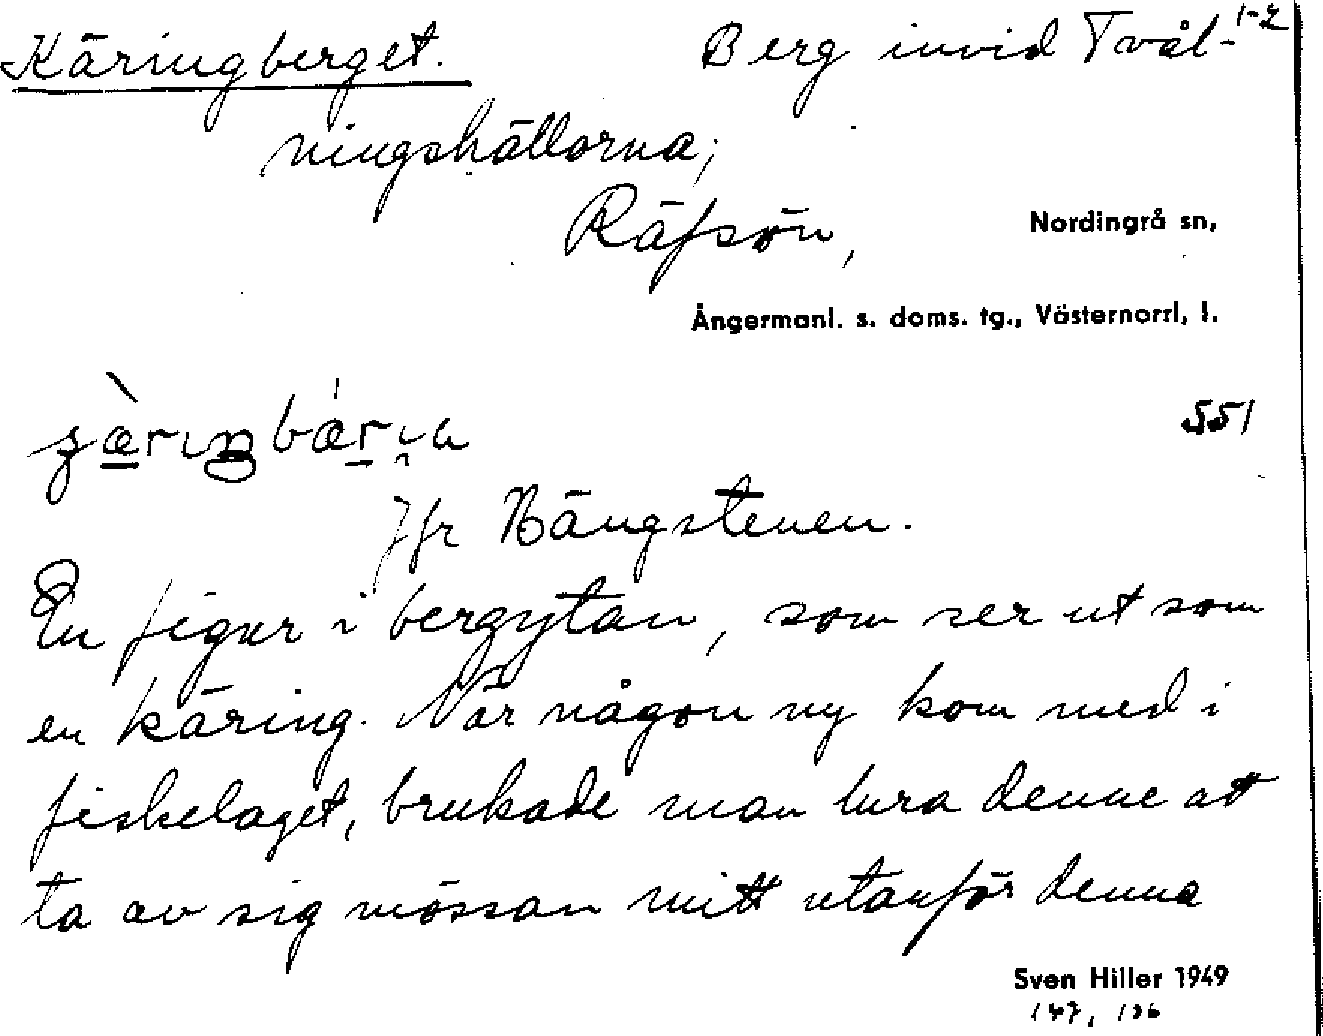 Käringberget. Berg invid Tvål- 1-2
ningshällorna;
Räfsön,
Nordingrå sn,
Ångermanl. s. doms. tg., Västernorrl. l.
551
Jfr Hängstenen.
En figur i bergytan, som ser ut som
en käring. När någon ny kom med i
fiskelaget, brukade man lura denne att
ta av sig mössan mitt utanför denna
Sven Hiller 1949
147, 136